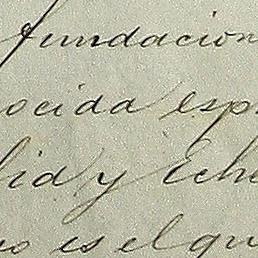 fundacion
ocida esp
lid y Eche
o es el qu